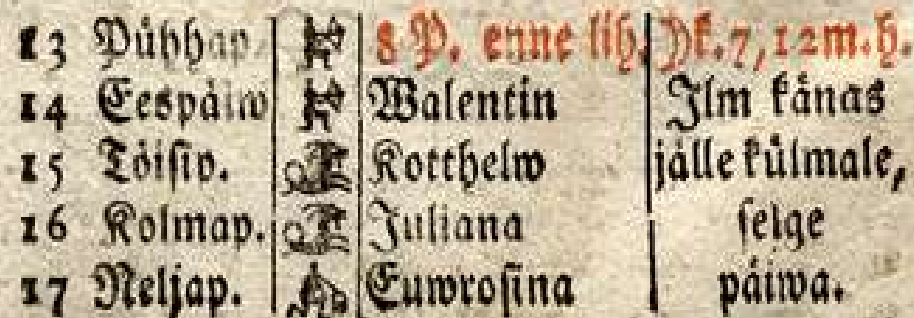 13 Pühhap. 8 P. enne lih. Yk. 7, 12 m. h.
14 Eespäiw Walentin Ilm känas
15 Töisip. Kotthelw jälle külmale,
16 Kolmap. Juliana selge
17 Neljap. Euwrosina päiwa.